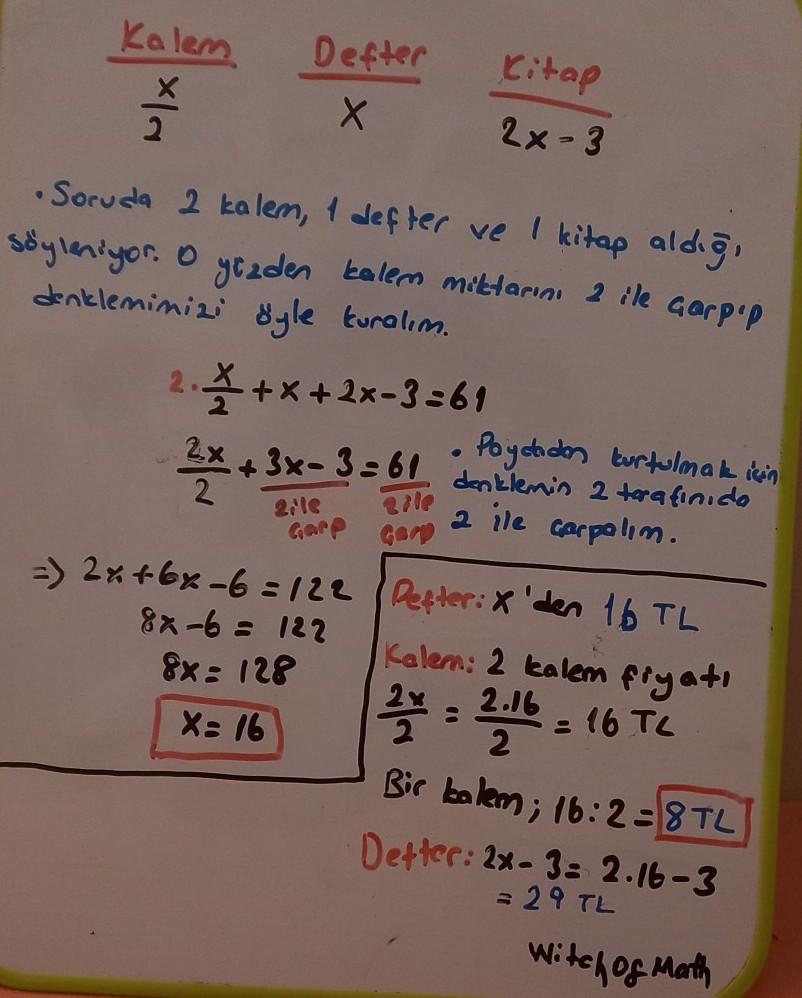 Kalem Defter Kitap
x/2 x 2x-3
• Soruda 2 kalem, 1 defter ve 1 kitap aldığı
söyleniyor. O yüzden kalem miktarını 2 ile çarpıp
denklemimizi öyle kuralım.
2. x/2 + x + 2x - 3 = 61
2x/2 + 3x - 3 = 61
2 ile çarp 2 ile çarp
• Paydadan kurtulmak için
denklemin 2 tarafınıda
2 ile çarpalım.
=> 2x + 6x - 6 = 122
8x - 6 = 122
8x = 128
x = 16
Defter: x'den 16 TL
Kalem: 2 kalem fiyatı
2x/2 = 2.16/2 = 16 TL
Bir kalem; 16:2 = 8 TL
Defter: 2x - 3 = 2.16 - 3
= 29 TL
Witch Of Math